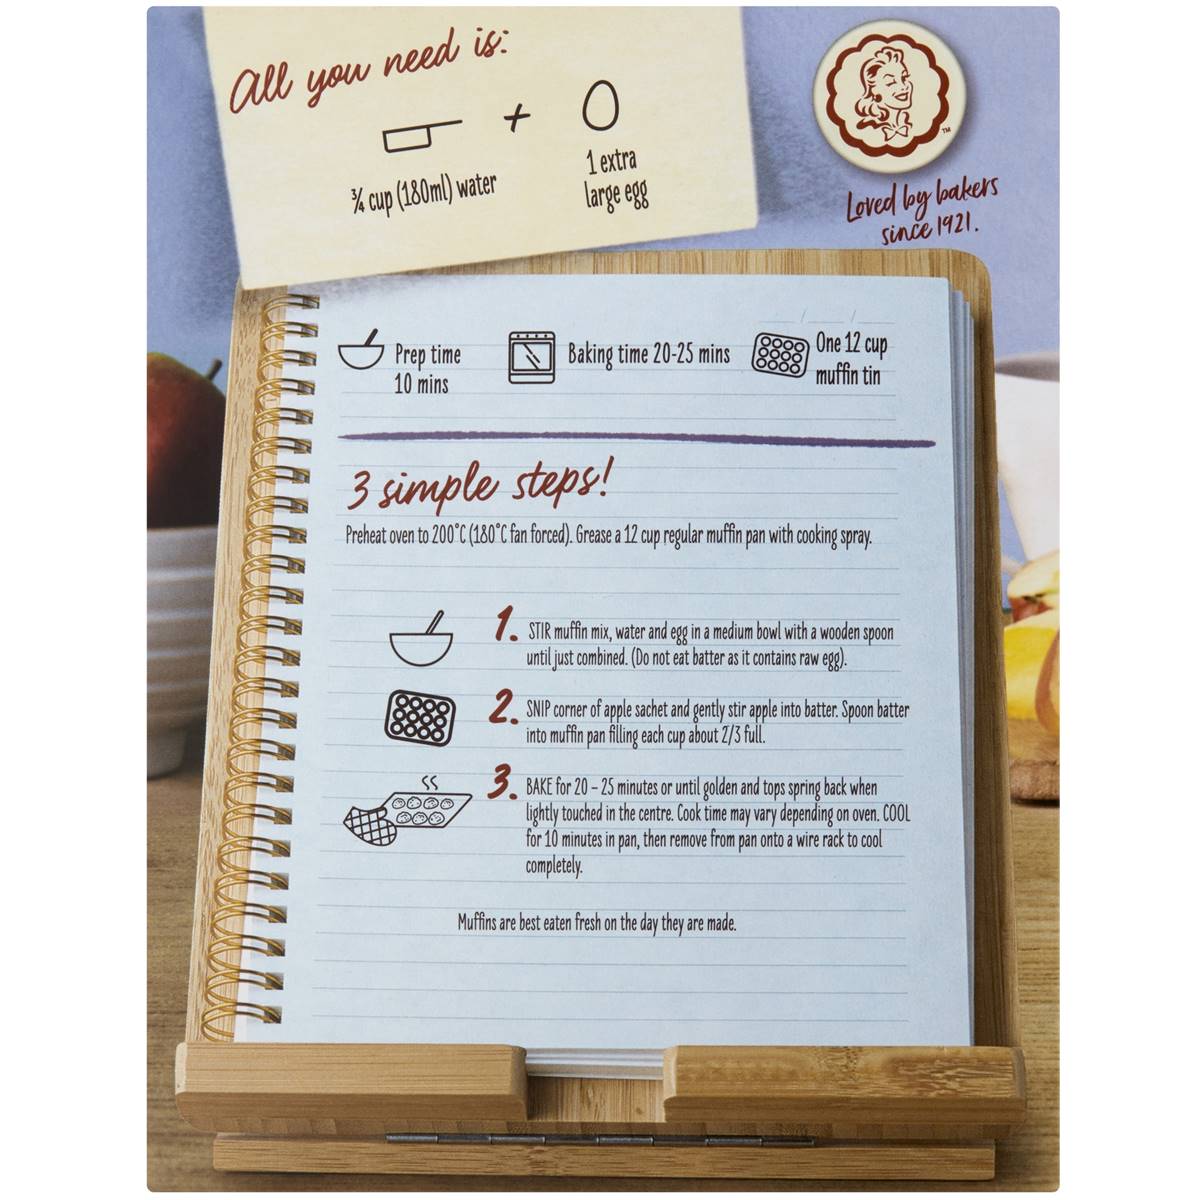 All you need is:
+
¾ cup (180ml) water
1 extra
large egg
TM
Loved by bakers
since 1921.
Prep time
10 mins
Baking time 20-25 mins
One 12 cup
muffin tin
3 simple steps!
Preheat oven to 200°C (180°C fan forced). Grease a 12 cup regular muffin pan with cooking spray.
1. STIR muffin mix, water and egg in a medium bowl with a wooden spoon
until just combined. (Do not eat batter as it contains raw egg).
2. SNIP corner of apple sachet and gently stir apple into batter. Spoon batter
into muffin pan filling each cup about 2/3 full.
3. BAKE for 20 – 25 minutes or until golden and tops spring back when
lightly touched in the centre. Cook time may vary depending on oven. COOL
for 10 minutes in pan, then remove from pan onto a wire rack to cool
completely.
Muffins are best eaten fresh on the day they are made.